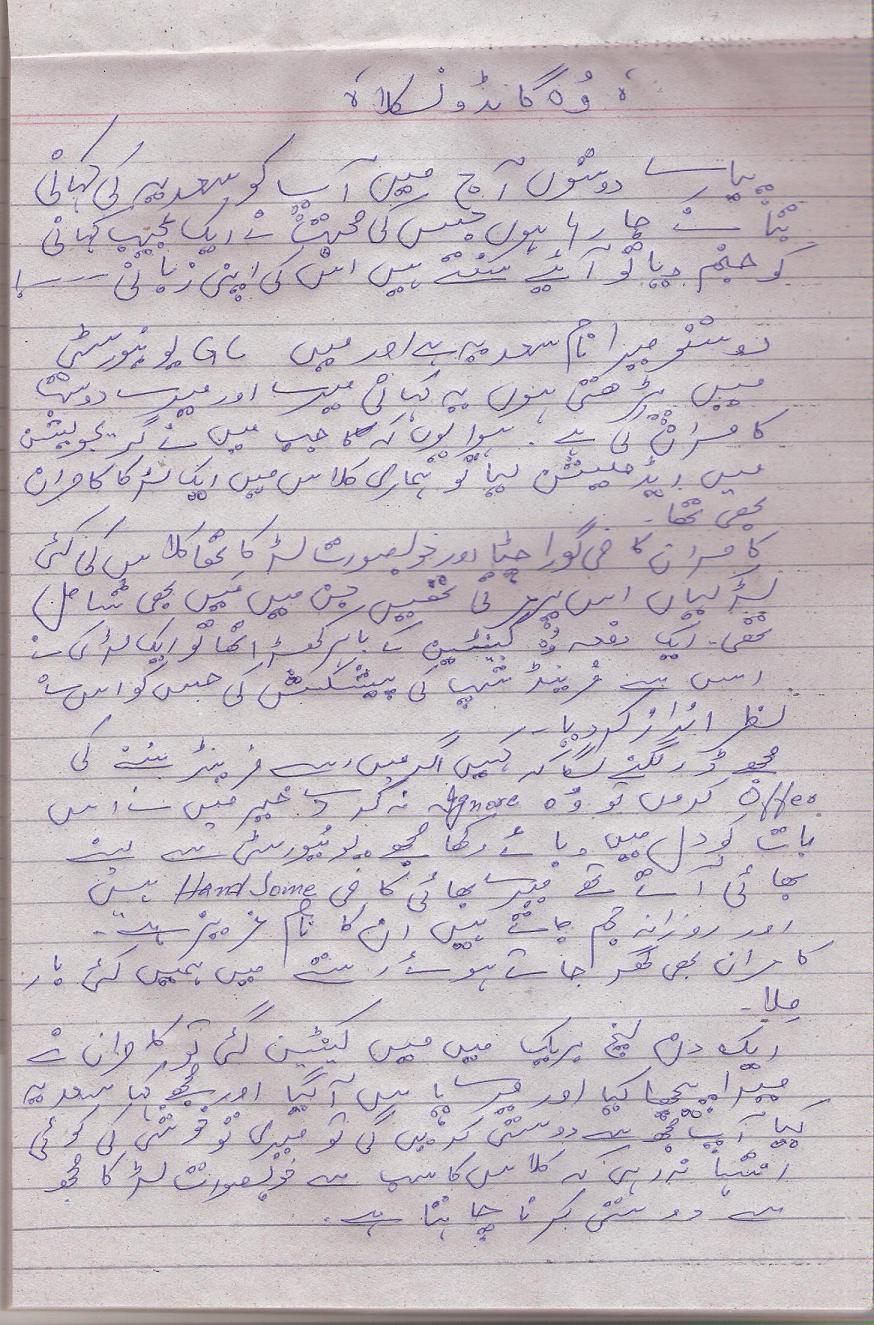 "وُہ گانڈو نکلا"
پیارے دوستوں آج میں آپ کو سعدیہ کی کہانی
بتانے جا رہا ہوں جس کی محبت نے ایک عجیب کہانی
کو جنم دیا تو آئیے سنتے ہیں اس کی اپنی زبانی ----!
دوستو میرا نام سعدیہ ہے اور میں یونیورسٹی
میں پڑھتی ہوں یہ کہانی میرے اور میرے دوست
کامران کی ہے۔ ہوا یوں کہ جب میں نے گریجویشن
میں ایڈمیشن لیا تو ہماری کلاس میں ایک لڑکا کامران
بھی تھا۔
کامران کافی گورا چٹا اور خوبصورت لڑکا تھا کلاس کی کئی
لڑکیاں اس پر تھیں جن میں میں بھی شامل
تھی۔ ایک دفعہ وُہ کینٹین کے باہر کھڑا تھا تو ایک لڑکی نے
اس سے فرینڈ شپ کی پیشکش کی جس کو اس نے
نظر انداز کر دیا۔
مجھے ڈر لگنے لگا کہ کہیں اگر میں اسے فرینڈ بننے کی
Offer کروں تو وُہ Ignore نہ کر دے خیر میں نے اس
بات کو دل میں دبائے رکھا مجھے یونیورسٹی سے لینے
بھائی آتے تھے میرے بھائی کافی HandSome ہیں
اور روزانہ جم جاتے ہیں ان کا نام عزیز ہے۔
کامران بھی گھر جاتے ہوئے رستے میں ہمیں کئی بار
مِلا۔
ایک دن لنچ بریک میں میں کینٹین گئی تو کامران نے
میرا پیچھا کیا اور میرے پاس آگیا اور مجھے کہا سعدیہ
کیا آپ مجھ سے دوستی کریں گی تو میری تو خوشی کی کوئی
انتہا نہ رہی کہ کلاس کا سب سے خوبصورت لڑکا مجھ
سے دوستی کرنا چاہتا ہے۔